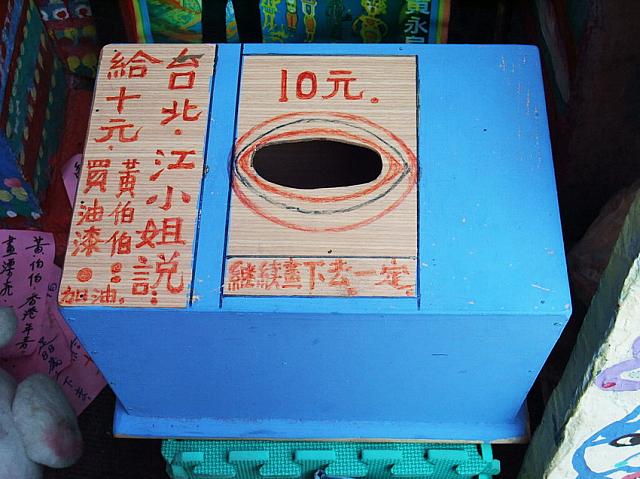 台北·江小姐說:
給十元.黃伯伯:
買油漆。加油.
10元.
繼续畫下去一定.
黃永阜
黃伯伯
香港年青